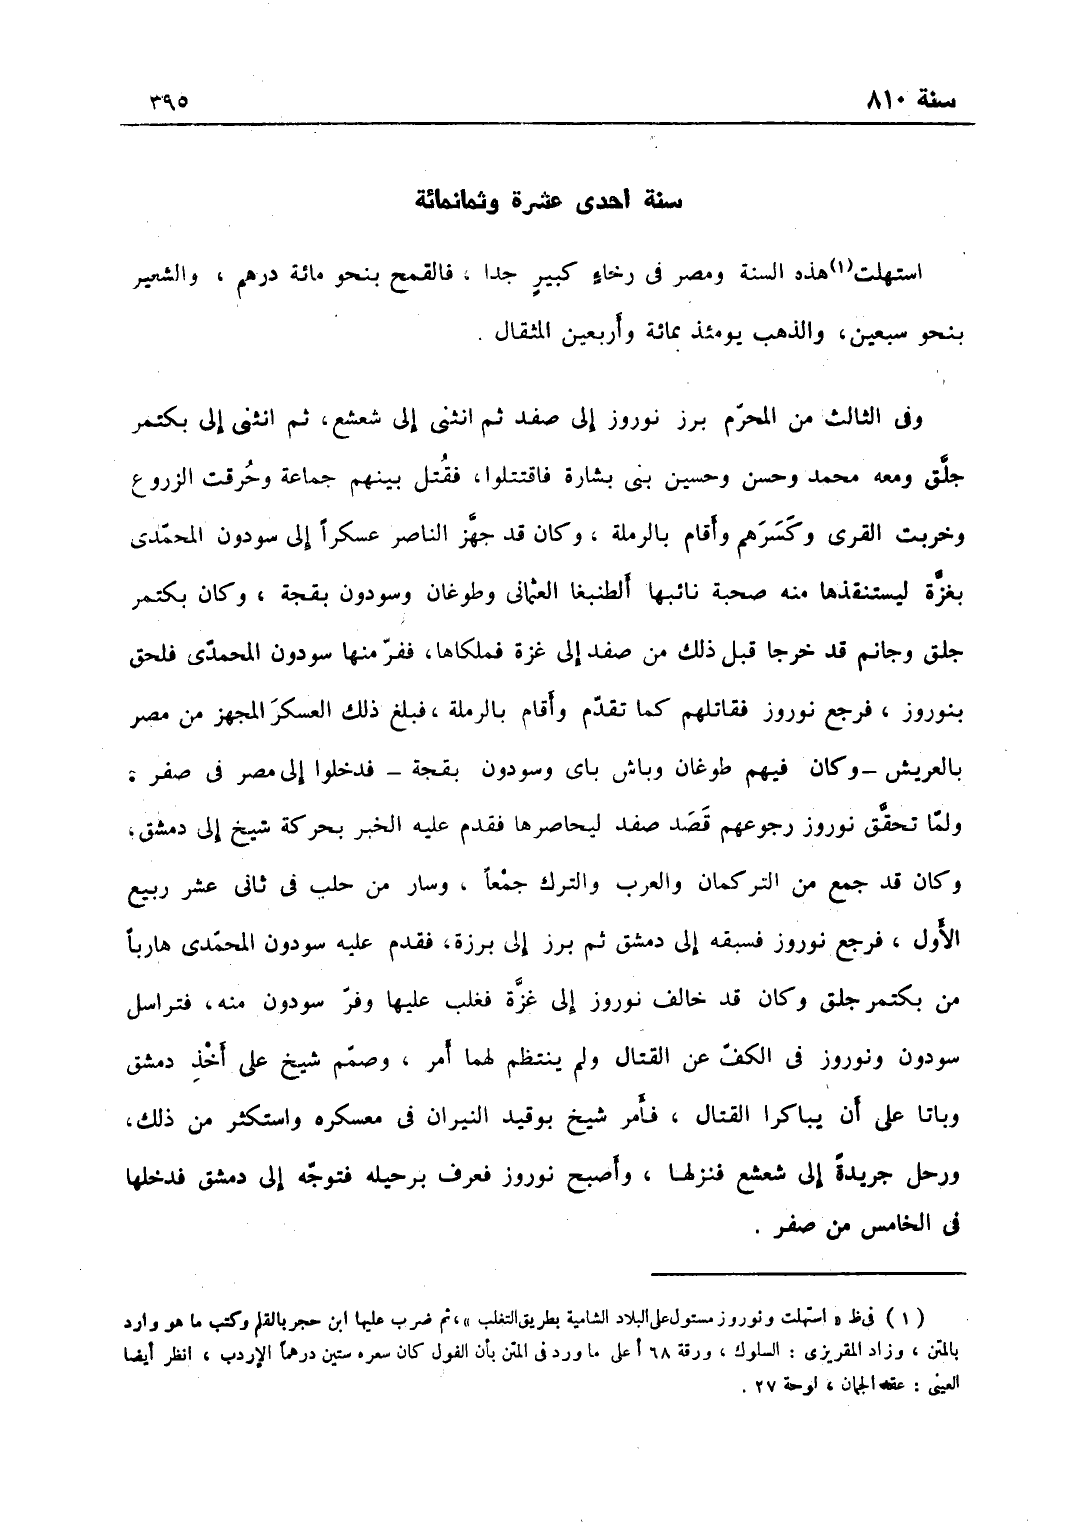 سنة ٨١٠ ٣٩٥
سنة احدى عشرة وثمانمائة
استهلت(١) هذه السنة ومصر فى رخاءٍ كبيرٍ جدا ، فالقمح بنحو مائة درهم ، والشعير
بنحو سبعين، والذهب يومئذ بمائة وأربعين المثقال .
وفى الثالث من المحرّم برز نوروز إلى صفد ثم انثنى إلى شعشع، ثم انثنى إلى بكتمر
جلَّق ومعه محمد وحسن وحسين بنى بشارة فاقتتلوا، فقُتل بينهم جماعة وحُرقت الزروع
وخربت القرى وكَسَرَهم وأقام بالرملة ، وكان قد جهَّز الناصر عسكراً إلى سودون المحمّدى
بغزَّة ليستنقذها منه صحبة نائبها ألطنبغا العثمانى وطوغان وسودون بقجة ، وكان بكتمر
جلق وجانم قد خرجا قبل ذلك من صفد إلى غزة فملكاها، ففرّ منها سودون المحمدّى فلحق
بنوروز ، فرجع نوروز فقاتلهم كما تقدّم وأقام بالرملة ، فبلغ ذلك العسكرَ المجهز من مصر
بالعريش – وكان فيهم طوغان وباش باى وسودون بقجة – فدخلوا إلى مصر فى صفر ؛
ولمّا تحقَّق نوروز رجوعهم قَصَد صفد ليحاصرها فقدم عليه الخبر بحركة شيخ إلى دمشق،
وكان قد جمع من التركمان والعرب والترك جمْعاً ، وسار من حلب فى ثانى عشر ربيع
الأول ، فرجع نوروز فسبقه إلى دمشق ثم برز إلى برزة، فقدم عليه سودون المحمّدى هارباً
من بكتمر جلق وكان قد خالف نوروز إلى غزَّة فغلب عليها وفرّ سودون منه، فتراسل
سودون ونوروز فى الكفّ عن القتال ولم ينتظم لهما أمر ، وصمّم شيخ على أخْذِ دمشق
وباتا على أن يباكرا القتال ، فأمر شيخ بوقيد النيران فى معسكره واستكثر من ذلك،
ورحل جريدةً إلى شعشع فنزلها ، وأصبح نوروز فعرف برحيله فتوجّه إلى دمشق فدخلها
فى الخامس من صفر .
(١) فى ظ « استهلت ونوروز مستول على البلاد الشامية بطريق التغلب »، ثم ضرب عليها ابن حجر بالقلم وكتب ما هو وارد
بالمتن ، وزاد المقريزى : السلوك ، ورقة ٦٨ أ على ما ورد فى المتن بأن الفول كان سعره ستين درهماً الإردب ، انظر أيضا
العينى : عقد الجمان ، لوحة ٢٧ .